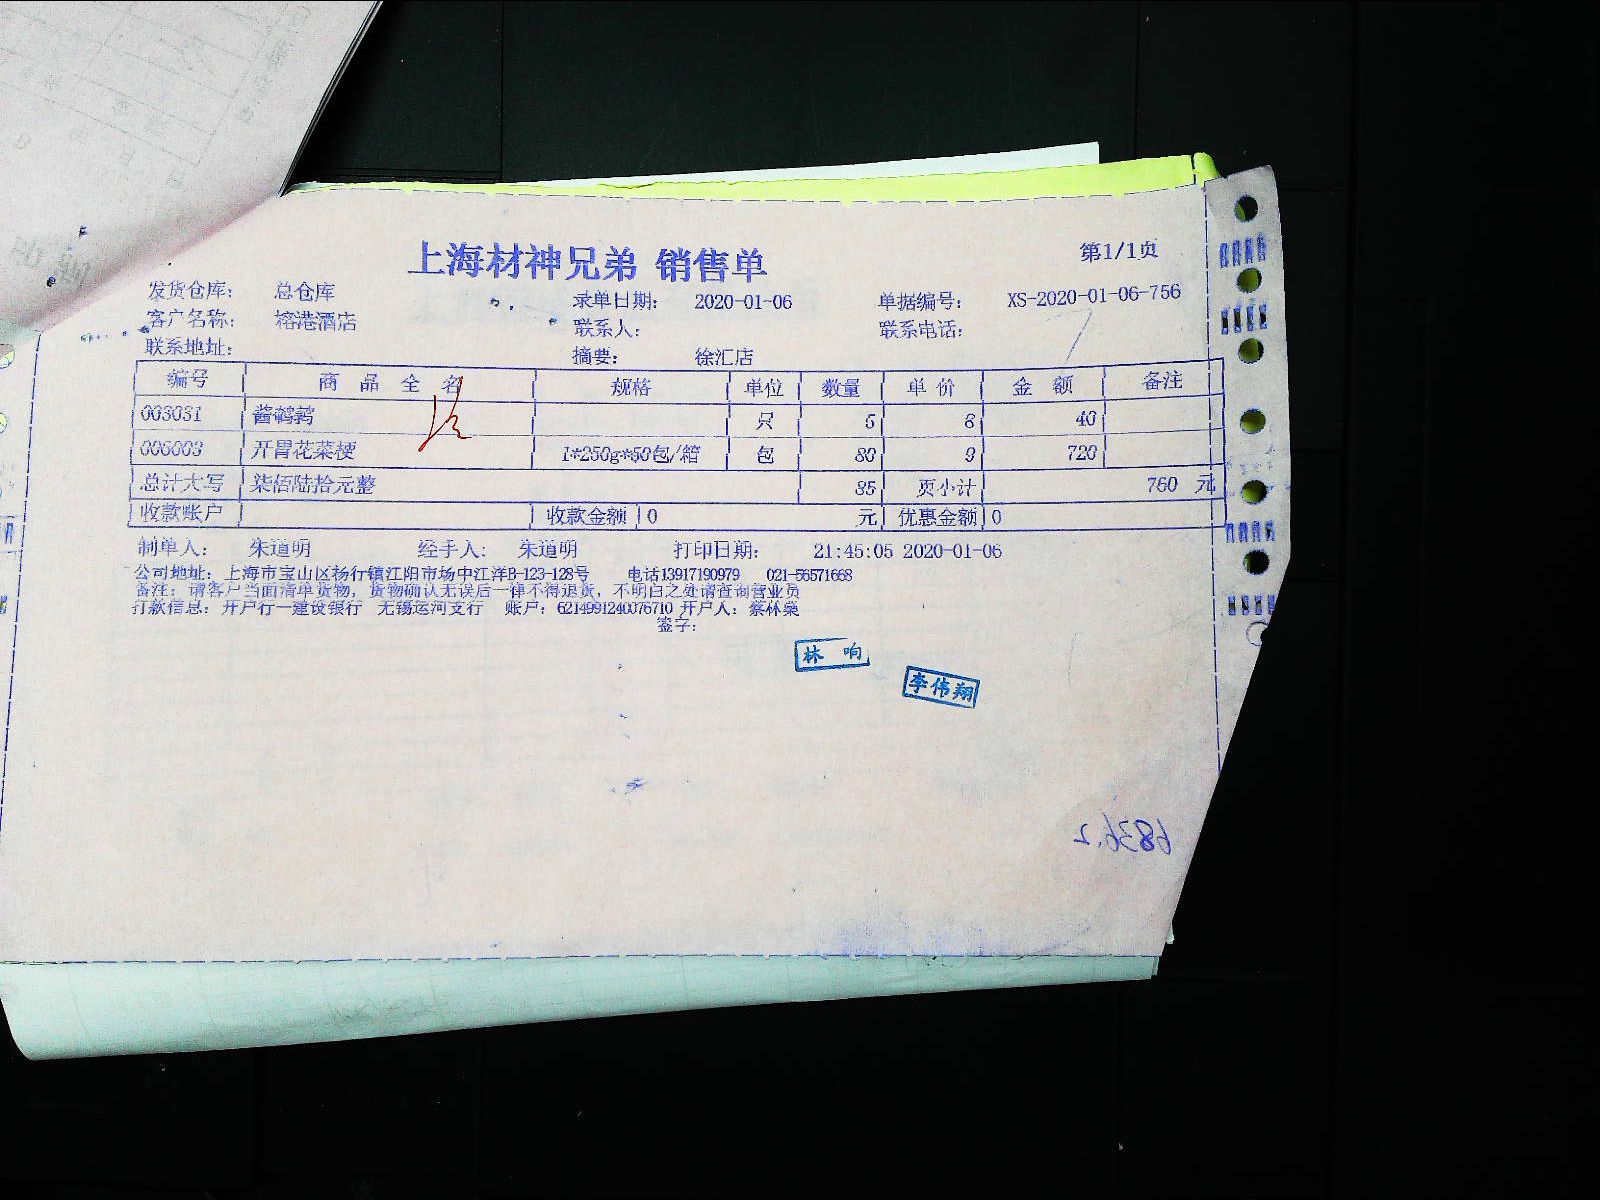 上海材神兄弟 销售单
第1/1页
发货仓库: 总仓库 录单日期: 2020-01-06 单据编号: XS-2020-01-06-756
客户名称: 榕港酒店 联系人: 联系电话:
联系地址: 摘要: 徐汇店
编号 商品全名 规格 单位 数量 单价 金额 备注
003031 酱鹌鹑 只 5 8 40
006003 开胃花菜梗 1*250g*50包/箱 包 80 9 720
总计大写 柒佰陆拾元整 85 页小计 760 元
收款账户 收款金额 0 元 优惠金额 0
制单人: 朱道明 经手人: 朱道明 打印日期: 21:45:05 2020-01-06
公司地址: 上海市宝山区杨行镇江阳市场中江洋B-123-128号 电话13917190979 021-56571668
备注: 请客户当面清单货物, 货物确认无误后一律不得退货, 不明白之处请查询营业员
打款信息: 开户行—建设银行 无锡运河支行 账户: 6214991240076710 开户人: 蔡林燊
签字:
林响
李伟翔
6836.2